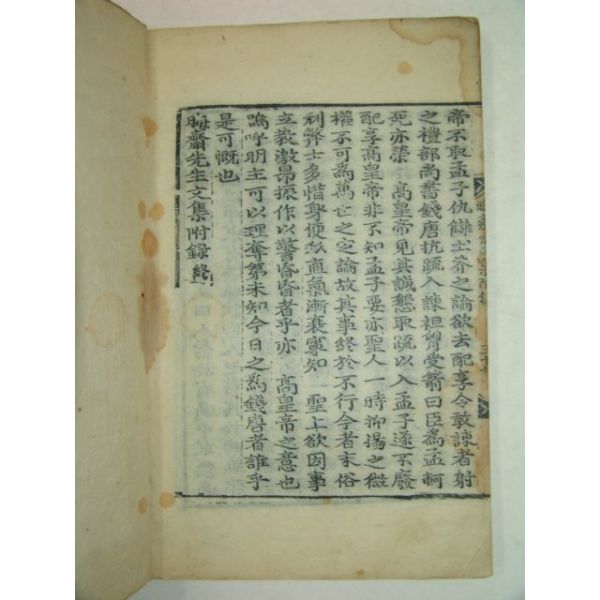 帝不取孟子仇讎土芥之論欲去配享令敢諫者射
之禮部尙書錢唐抗疏入諫袒胷受箭曰臣爲孟軻
死亦榮　高皇帝見其誠懇取疏以入孟子遂不廢
配享高皇帝非不知孟子要亦聖人一時抑揚之微
權不可爲萬亡之定論故其事終於不行今者末俗
刓弊士多惜身便私直氣漸衰寧知　聖上欲因事
立敎激昂振作以警昏昏者乎亦　高皇帝之意也
嗚呼明主可以理奪第未知今日之爲錢唐者誰乎
是可慨也
晦齋先生文集附錄終